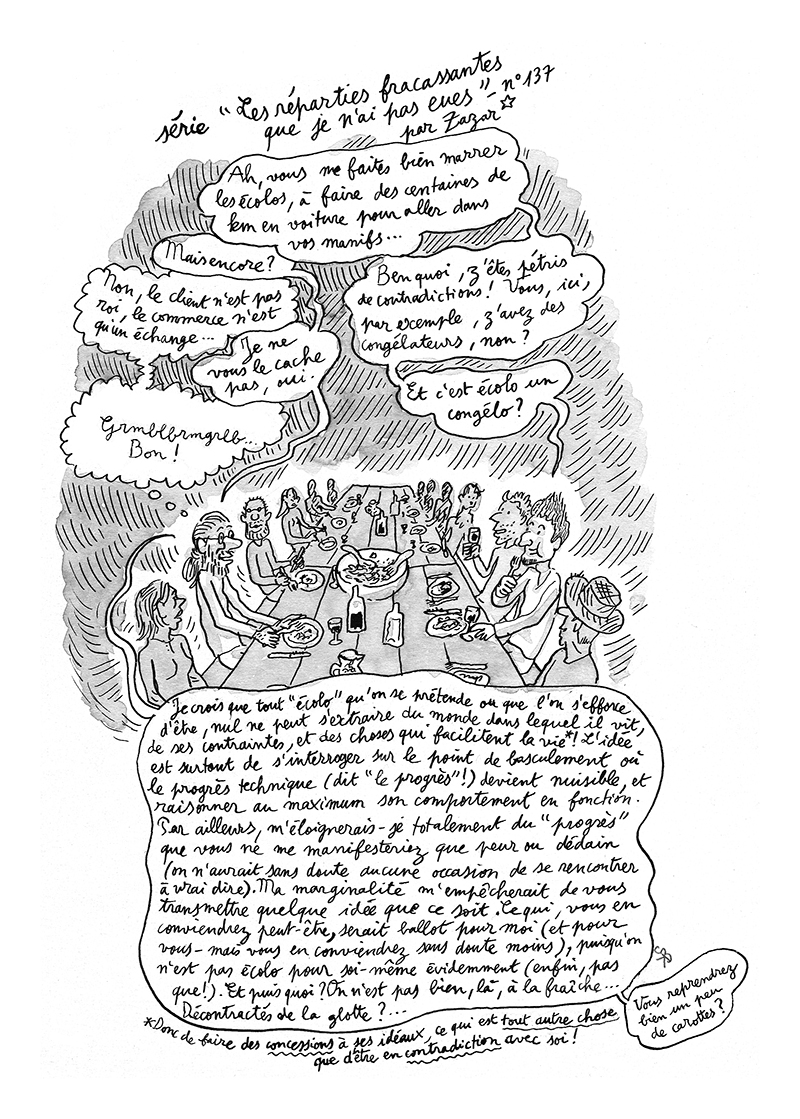 série "Les réparties fracassantes
que je n'ai pas eues" - n°137
par Zazar☆
Ah, vous me faites bien marrer
les écolos, à faire des centaines de
km en voiture pour aller dans
vos manifs...
Mais encore?
Ben quoi, z'êtes pétris
de contradictions! Vous, ici,
par exemple, z'avez des
congélateurs, non?
Non, le client n'est pas
roi, le commerce n'est
qu'un échange...
Je ne
vous le cache
pas, oui.
Et c'est écolo un
congélo?
Grmblbrmgrlb...
Bon!
Je crois que tout "écolo" qu'on se prétende ou que l'on s'efforce
d'être, nul ne peut s'extraire du monde dans lequel il vit,
de ses contraintes, et des choses qui facilitent la vie*! L'idée
est surtout de s'interroger sur le point de basculement où
le progrès technique (dit "le progrès"!) devient nuisible, et
raisonner au maximum son comportement en fonction.
Par ailleurs, m'éloignerais-je totalement du "progrès"
que vous ne me manifesteriez que peur ou dédain
(on n'aurait sans doute aucune occasion de se rencontrer
à vrai dire). Ma marginalité m'empêcherait de vous
transmettre quelque idée que ce soit. Ce qui, vous en
conviendrez peut-être, serait ballot pour moi (et pour
vous - mais vous en conviendrez sans doute moins), puisqu'on
n'est pas écolo pour soi-même évidemment (enfin, pas
que!). Et puis quoi? On n'est pas bien, là, à la fraîche...
Décontractés de la glotte?...
Vous reprendrez
bien un peu
de carottes?
*Donc de faire des concessions à ses idéaux, ce qui est tout autre chose
que d'être en contradiction avec soi!